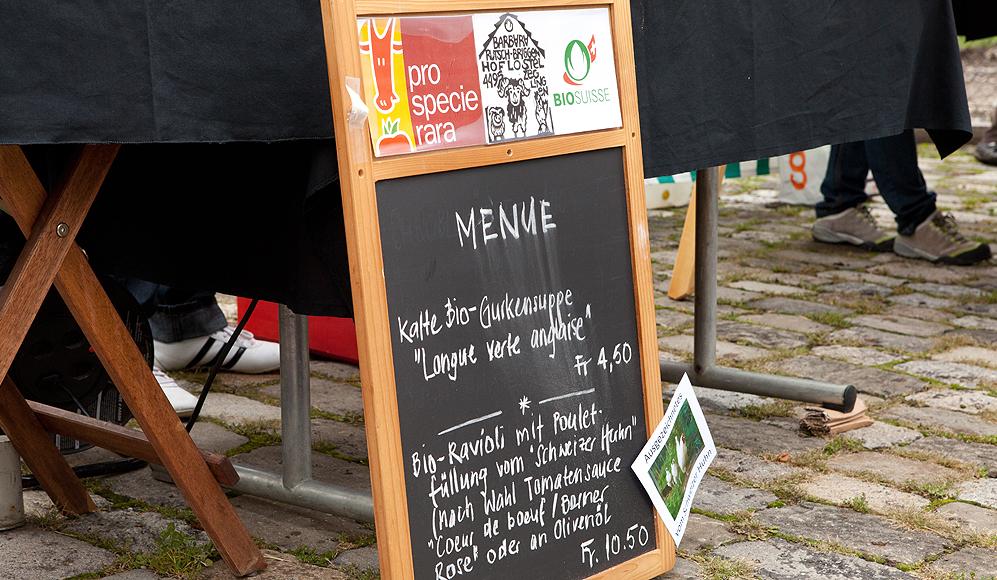 pro
specie
rara
BARBARA
HOF LOSTEL
BIOSUISSE
MENUE
Kalte Bio-Gurkensuppe
"Longue verte anglaise"
Fr 4,50
*
Bio-Ravioli mit Poulet-
füllung vom "Schweizer Huhn"
(nach Wahl Tomatensauce
"Coeur de boeuf / Berner
Rose" oder an Olivenöl
Fr. 10.50
Ausgezeichnetes
vom Schweizer Huhn
g